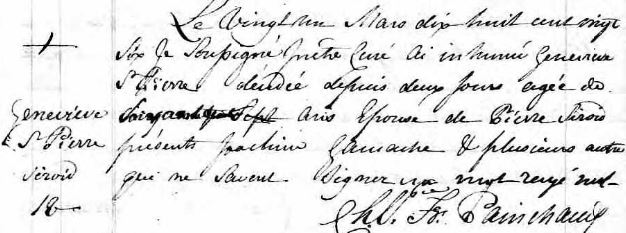 Le Vingt un Mars dix huit cent vingt
six Je Soussigné prêtre Curé ai inhumé Genevieve
St Pierre décédée depuis deux jours agée de
Soixante Sept Ans Epouse de Pierre Sirois
présents Joachim Gamache & plusieurs autre
qui ne Savent Signer un mot rayé nul
Ch. Frs. Painchaud
+
Geneviève
St Pierre
Sirois
18